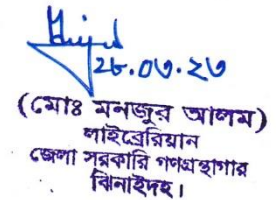 ২৮.০৩.২৩
(মোঃ মনজুর আলম)
লাইব্রেরিয়ান
জেলা সরকারি গণগ্রন্থাগার
ঝিনাইদহ।